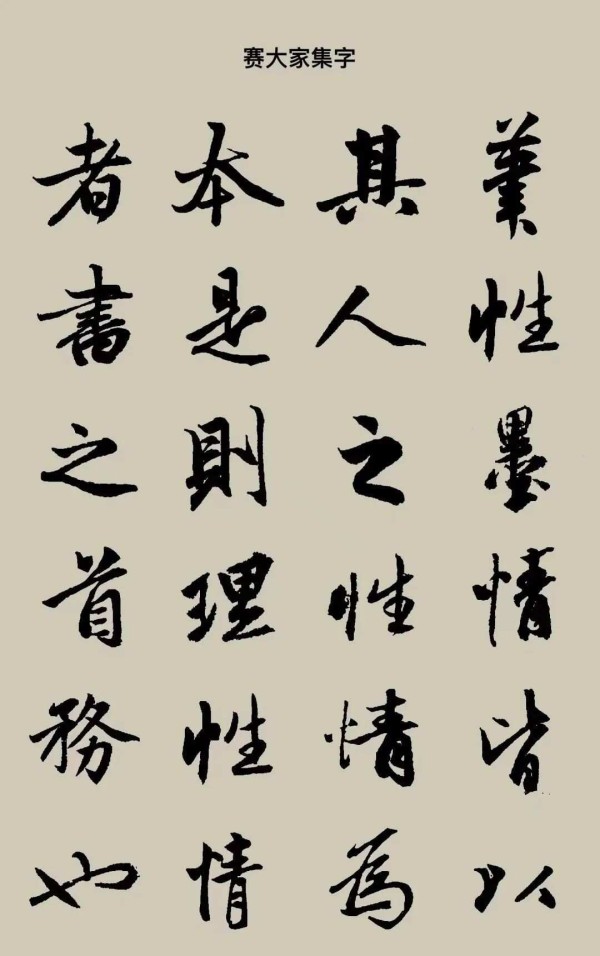 赛大家集字
筆性墨情皆以
其人之性情為
本是則理性情
者書之首務也